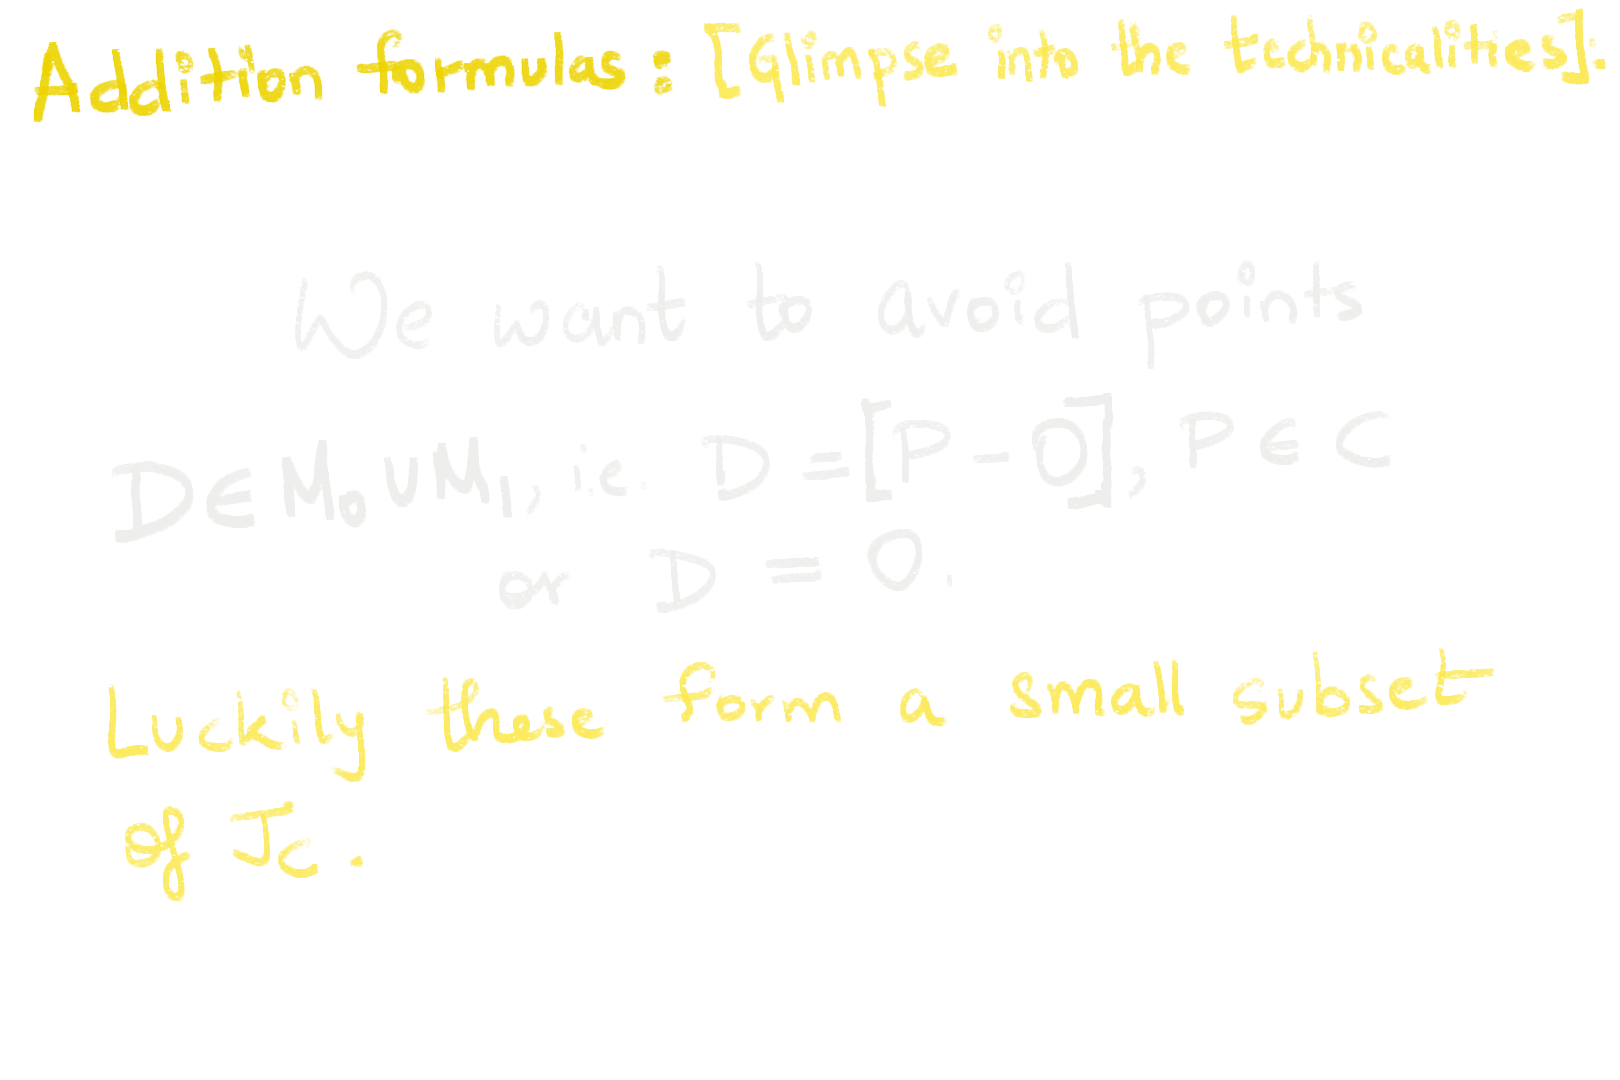 Addition formulas : [Glimpse into the technicalities].
We want to avoid points
D∈M₀∪M₁, i.e. D=[P-O], P∈C
or D = O.
Luckily these form a small subset
of J_C.